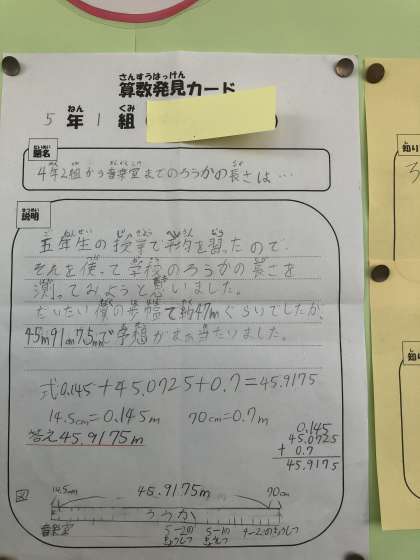 さんすうはっけん
算数発見カード
5年1組
題名
4年2組から音楽室までのろうかの長さは…
説明
五年生の授業で平均を習ったので、
それを使って学校のろうかの長さを
測ってみようと思いました。
だいたい僕の歩幅で約47mぐらいでしたが、
45m91cm7.5mmで予想がまあ当たいました。
式0.145+45.0725+0.7=45.9175
14.5cm=0.145m 70cm=0.7m
答え45.9175m
0.145
45.0725
+ 0.7
45.9175
図
14.5cm 45.9175m 70cm
ろうか
音楽室 5-2のきょうしつ 5-1のきょうしつ 4-2のきょうしつ